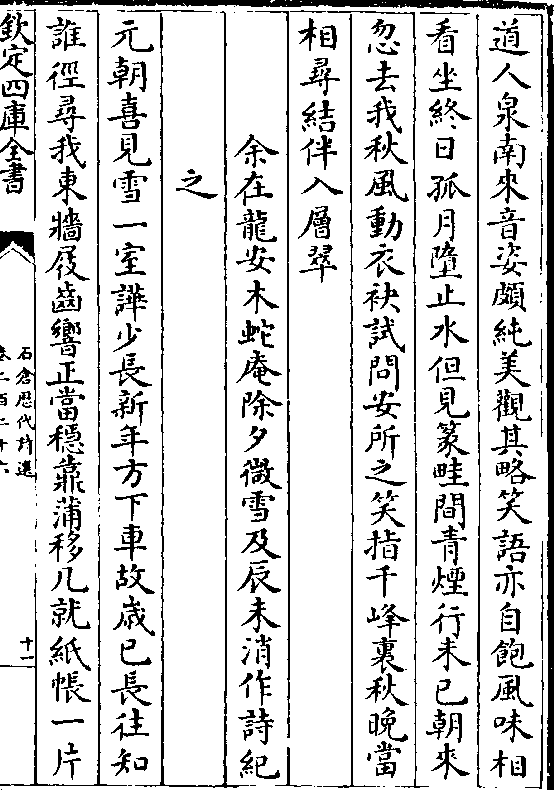 道人泉南來音姿頗純美觀其略笑語亦自飽風味相
看坐終日孤月墮止水但見篆畦間青煙行未已朝來
忽去我秋風動衣袂試問安所之笑指千峰裏秋晚當
相尋結伴入層翠
余在龍安木蛇庵除夕微雪及辰未消作詩紀
之
元朝喜見雪一室譁少長新年方下車故歳已長往知
誰徑尋我東牆屐齒響正當穩靠蒲移几就紙帳一片
欽定四庫全書
石倉歴代詩選
卷二百二十六
十一